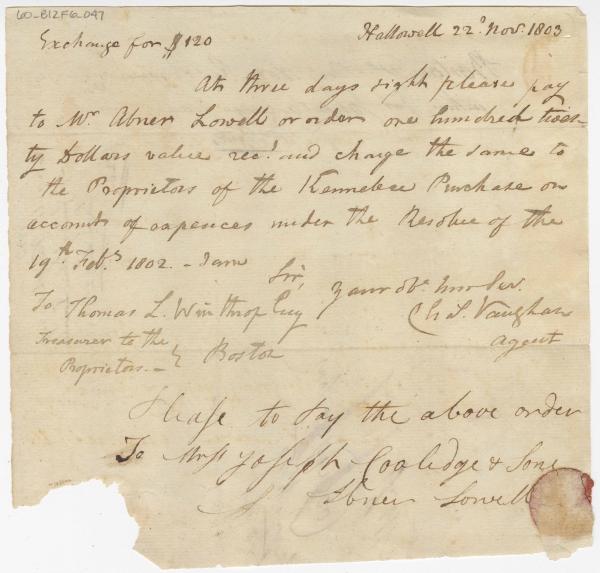 60-B12F6-047
Hallowell 22d Nov. 1803
Exchange for $120
At three days sight please pay
to Mr Abner Lowell or order one hundred twen-
ty Dollars value recd and charge the same to
the Proprietors of the Kennebec Purchase on
account of expences under the Resolve of the
19th Feby 1802. - I am
Sir,
your obt. Hum Ser.
To Thomas L. Winthrop Esq
Ch S. Vaughan
Treasurer to the
Agent
Proprietors. - } Boston
Please to Pay the above order
To Mrss Joseph Coolidge & Sons
Abner Lowell